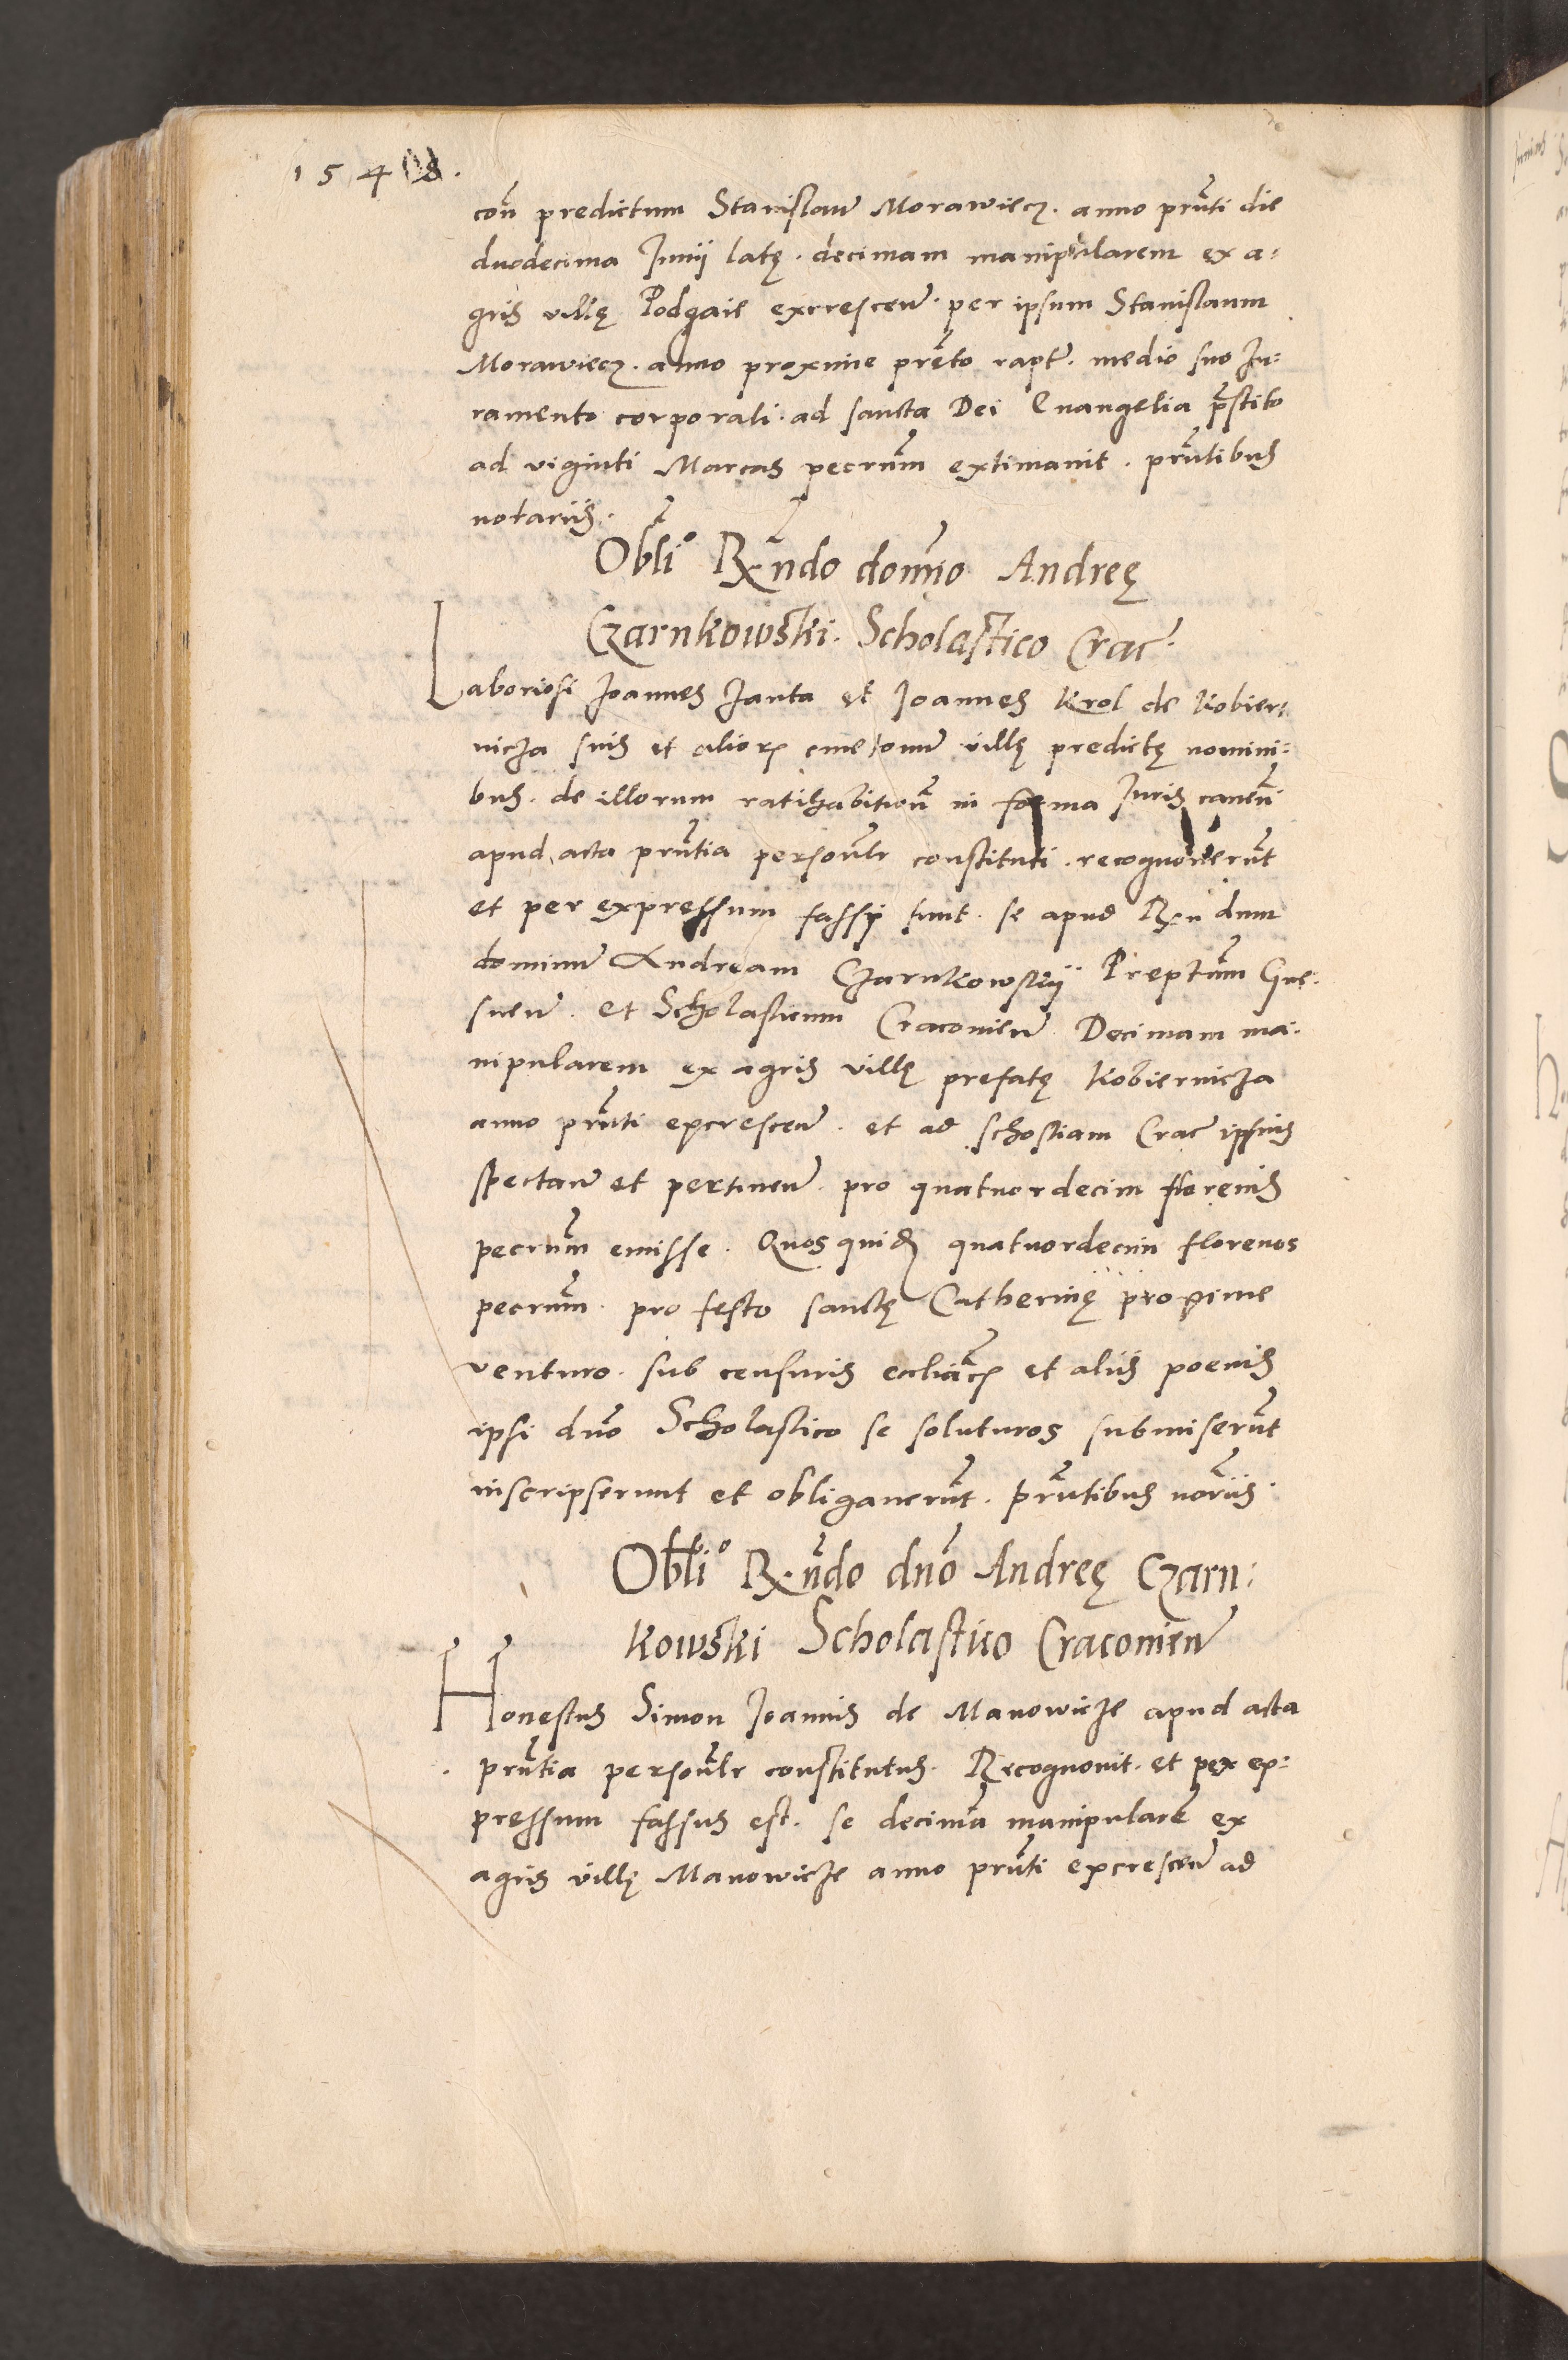 1548.
con̄ predictum Stanislaū Morawiecz. anno prn̄ti die
duodecima Junij latę. decimam manipularem ex a-
gris villę Podgaie excrescen̄. per ipsum Stanislaum
Morawiecz. anno proxime pret̄o rapt̄. medio suo Ju-
ramento corporali. ad sancta Dei Euangelia prēstito
ad viginti Marcas pecrum̄ extimauit. prn̄tibus
notariis.
Obli° Rx̄ndo domn̄o Andreę
Czarnkowski. Scholastico Crac̄.
Laboriosi Joannes Janta et Joannes Krol de Kobier-
nicza suis et alior̄ cmetonū villę predictę nomini-
bus. de illorum ratihabition̄ in forma Juris cauen̄
apud acta prn̄tia personl̄r constituti. recognouerūt
et per expressum fassi sunt. se apud Rx̄ndum
dominū Andream Czarnkowskij Prept̄um Gne-
snen̄. et Scholasticum Cracouien̄. Decimam ma-
nipularem ex agris villę prefatę Kobiernicza
anno prn̄ti excrescen̄. et ad schostiam Crac̄ ipsius
spectan̄ et pertinen̄. pro quatuordecim florenis
pecrum̄ emisse. Quos quid̄ quatuordecim florenos
pecrum̄. pro festo sanctę Catherinę proxime
venturo. sub censuris eccliāc̄ et aliis poenis
ipsi dn̄o Scholastico se soluturos submiserūt
inscripserunt et obligauerūt. prn̄tibus nor̄iis.
Obli° Rx̄ndo dn̄o Andreę Czarn-
kowski Scholastico Cracouien̄
Honestus Simon Joannis de Manowicze apud acta
prn̄tia personl̄r constitutus. Recognouit. et per ex-
pressum fassus est. se decimā manipularē ex
agris villę Manowicze anno prn̄ti excrescen̄ ad